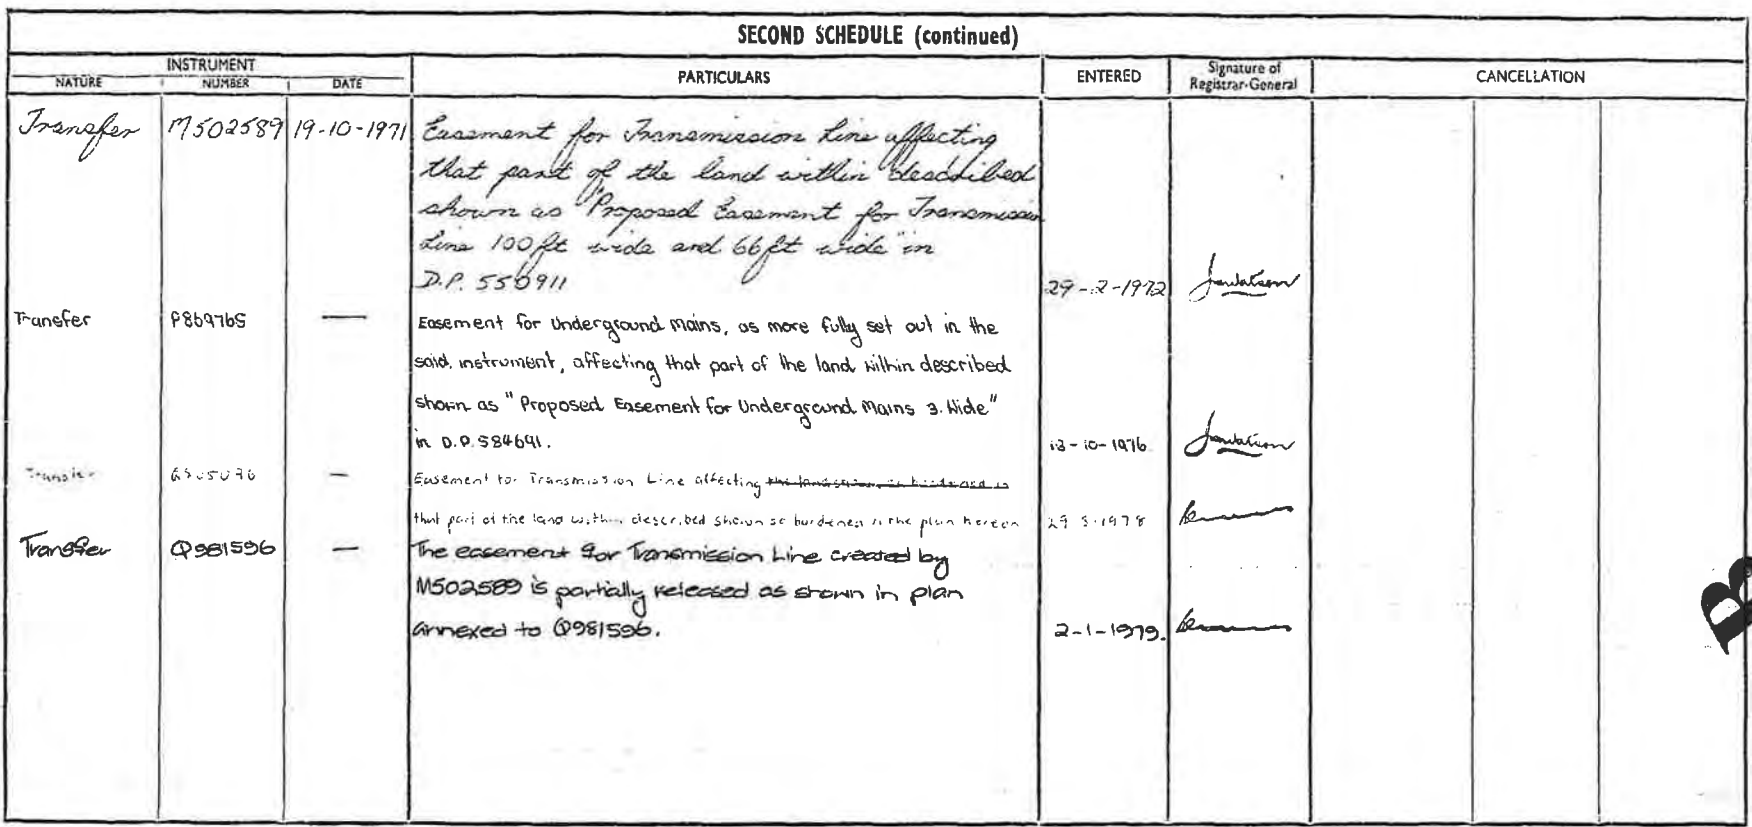 SECOND SCHEDULE (continued)
INSTRUMENT
NATURE NUMBER DATE PARTICULARS ENTERED Signature of Registrar-General CANCELLATION
Transfer M502589 19-10-1971 Easement for Transmission Line affecting
that part of the land within described
shown as "Proposed Easement for Transmission
Line 100ft wide and 66ft wide" in
D.P. 550911 29-2-1972 Jawatson
Transfer P869765 — Easement for Underground Mains, as more fully set out in the
said instrument, affecting that part of the land within described
shown as "Proposed Easement for Underground Mains 3. Wide"
in D.P. 584691. 13-10-1976 Jawatson
Transfer — Easement for Transmission Line affecting
that part of the land within described shown so burdened in the plan hereon 29 3-1978
Transfer Q981596 — The easement for Transmission Line created by
M502589 is partially released as shown in plan
annexed to Q981596. 2-1-1979.